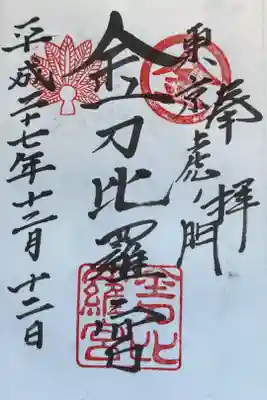 奉拝
東京虎ノ門
金刀比羅宮
平成二十七年十二月十二日
金
金刀比羅宮